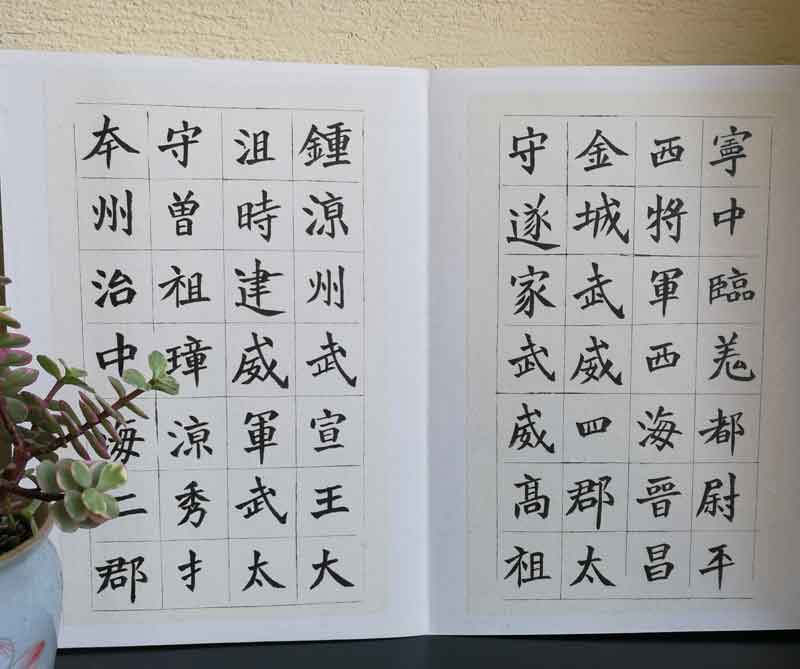 寧中臨羌都尉平
西將軍西海晉昌
金城武威四郡太
守遂家武威髙祖
鍾涼州武宣王大
沮時建威軍武太
守曽祖璋涼秀才
夲州治中海二郡